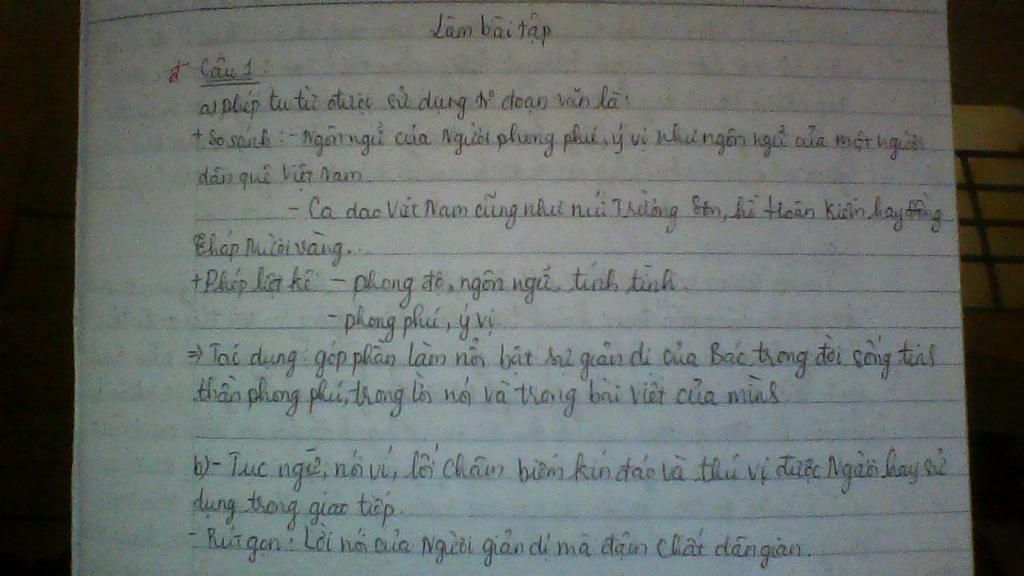 Làm bài tập
Câu 1:
a) phép tu từ được sử dụng tr° đoạn văn là:
+ So sánh: - Ngôn ngữ của Người phong phú, ý vị như ngôn ngữ của một người
dân quê Việt Nam
- Ca dao Việt Nam cũng như núi Trường Sơn, hồ Hoàn Kiếm hay đồng
tháp Mười vàng.
+ Phép liệt kê - phong độ, ngôn ngữ, tính tình.
- phong phú, ý vị
⇒ Tác dụng: góp phần làm nổi bật sự giản dị của Bác trong đời sống tinh
thần phong phú, trong lời nói và trong bài viết của mình.
b) - Tục ngữ, nói ví, lối châm biếm kín đáo và thú vị được Người hay sử
dụng trong giao tiếp.
- Rút gọn: Lời nói của Người giản dị mà đậm chất dân gian.